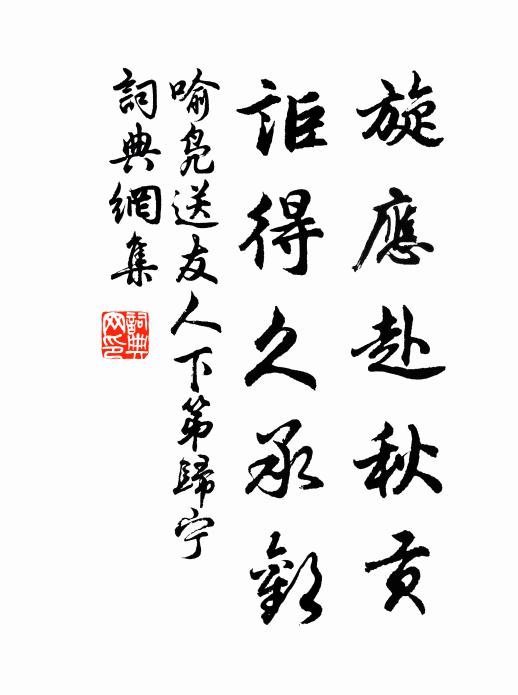 旋應赴秋貢
詎得久承歡
喻凫送友人下第歸宁
詞典網集
詞典网印